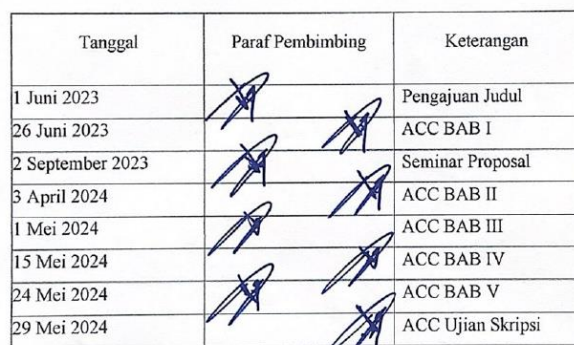 Tanggal Paraf Pembimbing Keterangan
1 Juni 2023 Pengajuan Judul
26 Juni 2023 ACC BAB I
2 September 2023 Seminar Proposal
3 April 2024 ACC BAB II
1 Mei 2024 ACC BAB III
15 Mei 2024 ACC BAB IV
24 Mei 2024 ACC BAB V
29 Mei 2024 ACC Ujian Skripsi